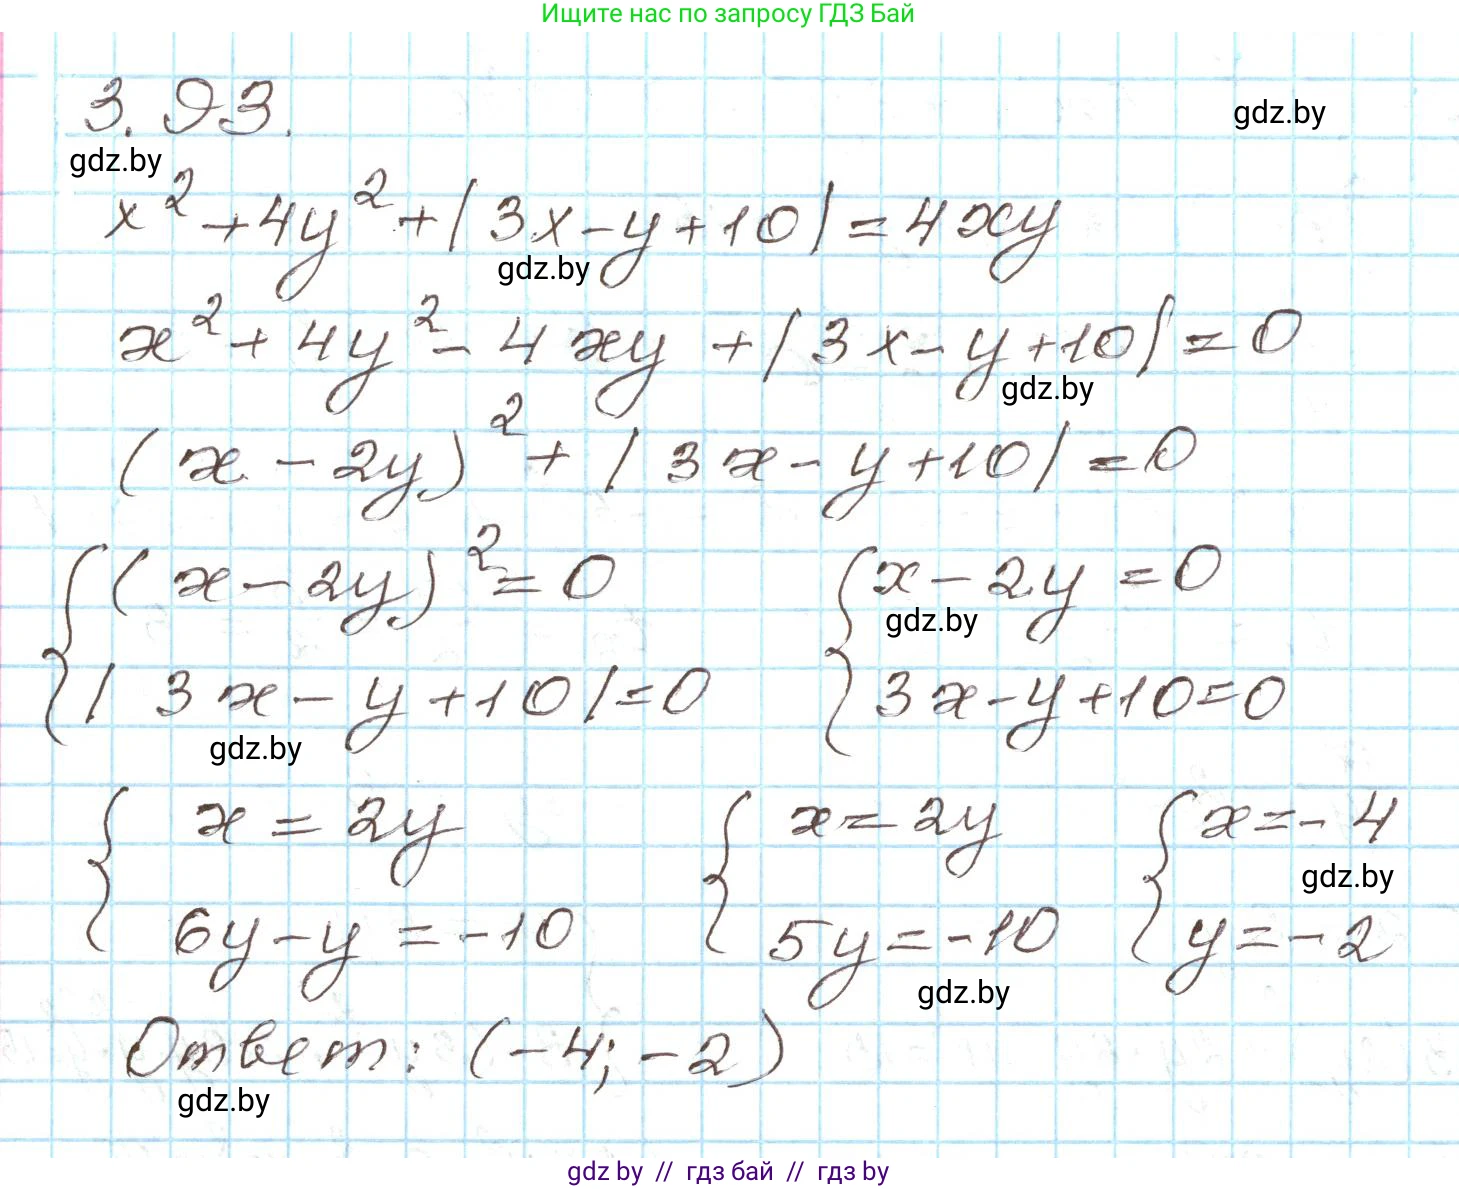 Ищите нас по запросу ГДЗ Бай
3.93.
gdz.by
gdz.by
x² + 4y² + |3x - y + 10| = 4xy
gdz.by
x² + 4y² - 4xy + |3x - y + 10| = 0
gdz.by
(x - 2y)² + |3x - y + 10| = 0
{ (x - 2y)² = 0 { x - 2y = 0
gdz.by
|3x - y + 10| = 0 3x - y + 10 = 0
gdz.by
{ x = 2y { x = 2y { x = -4
gdz.by
6y - y = -10 5y = -10 y = -2
gdz.by
Ответ: (-4; -2)
gdz.by
gdz by // гдз бай // гдз by